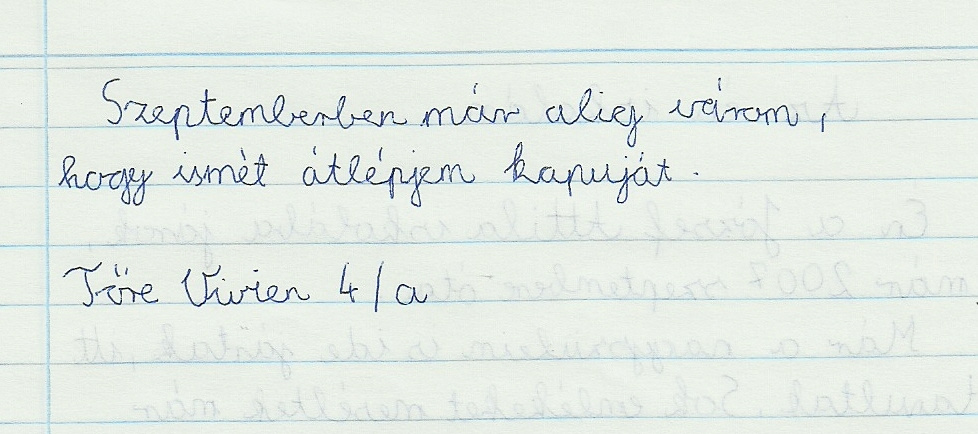 Szeptemberben már alig várom,
hogy ismét átlépjem kapuját.
Tőre Vivien 4/a